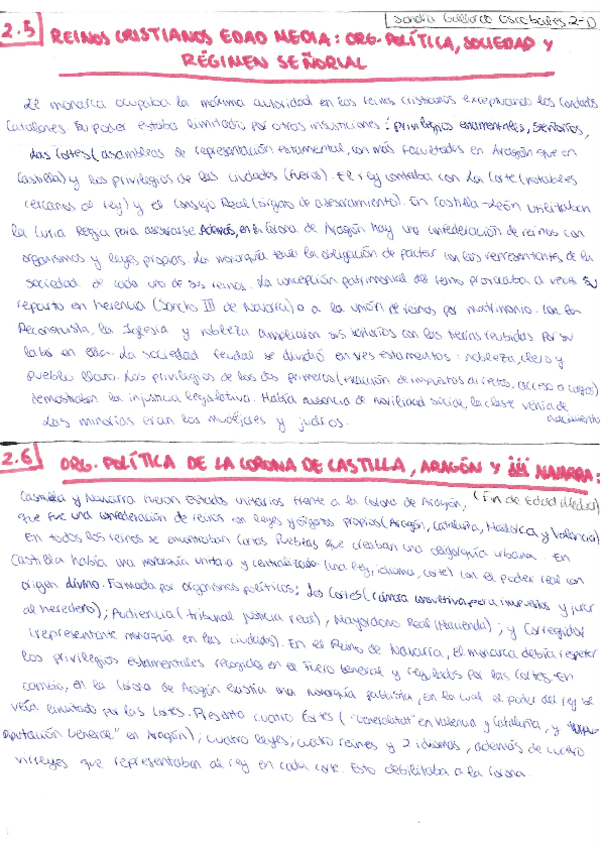 Sandra Gallardo 2-D
2.5 REINOS CRISTIANOS EDAD MEDIA: ORG. POLÍTICA, SOCIEDAD Y
RÉGIMEN SEÑORIAL
El monarca ocupaba la máxima autoridad en los reinos cristianos exceptuando los Condados
Catalanes. Su poder estaba limitado por otras instituciones: privilegios estamentales, señoríos,
las Cortes (asambleas de representación estamental, con más facultades en Aragón que en
Castilla) y los privilegios de las ciudades (fueros). El rey contaba con la Corte (notables
cercanos al rey) y el Consejo Real (órgano de asesoramiento). En Castilla-León utilizaban
la Curia Regia para asesorarse. Además, en la Corona de Aragón hay una confederación de reinos con
organismos y leyes propias. La monarquía tenía la obligación de pactar con los representantes de la
sociedad de cada uno de sus reinos. La concepción patrimonial del reino provocaba a veces su
reparto en herencia (Sancho III de Navarra) o a la unión de reinos por matrimonio. Con la
Reconquista, la Iglesia y nobleza ampliaron sus territorios con las tierras recibidas por su
labor en ella. La sociedad feudal se dividió en tres estamentos: nobleza, clero y
pueblo llano. Los privilegios de los dos primeros (exacción de impuestos directos, acceso a cargos)
demostraban la injusticia legislativa. Había ausencia de movilidad social, la clase venía de
nacimiento
Las minorías eran los mudéjares y judíos.
2.6 ORG. POLÍTICA DE LA CORONA DE CASTILLA, ARAGÓN Y NAVARRA:
(Fin de Edad Media)
Castilla y Navarra fueron Estados unitarios frente a la Corona de Aragón,
que fue una confederación de reinos con leyes y órganos propios (Aragón, Cataluña, Mallorca y Valencia)
En todos los reinos se encontraban Cartas Pueblas que creaban una oligarquía urbana. En
Castilla había una monarquía unitaria y centralizada (una ley, idioma, corte) con el poder real con
origen divino. Formada por organismos políticos: las Cortes (cámara consultiva para impuestos y jurar
al heredero); Audiencia (tribunal justicia real), Mayordomo Real (Hacienda); y Corregidor
(representante monarquía en las ciudades). En el Reino de Navarra, el monarca debía respetar
los privilegios estamentales recogidos en el Fuero General y regulados por las Cortes. En
cambio, en la Corona de Aragón existía una monarquía pactista, en la cual el poder del rey se
veía limitado por las Cortes. Presentó cuatro Cortes ("Generalitat" en Valencia y Cataluña, y
"Diputación General" en Aragón); cuatro leyes, cuatro reinos y 2 idiomas, además de cuatro
virreyes que representaban al rey en cada corte. Esto debilitaba a la Corona.